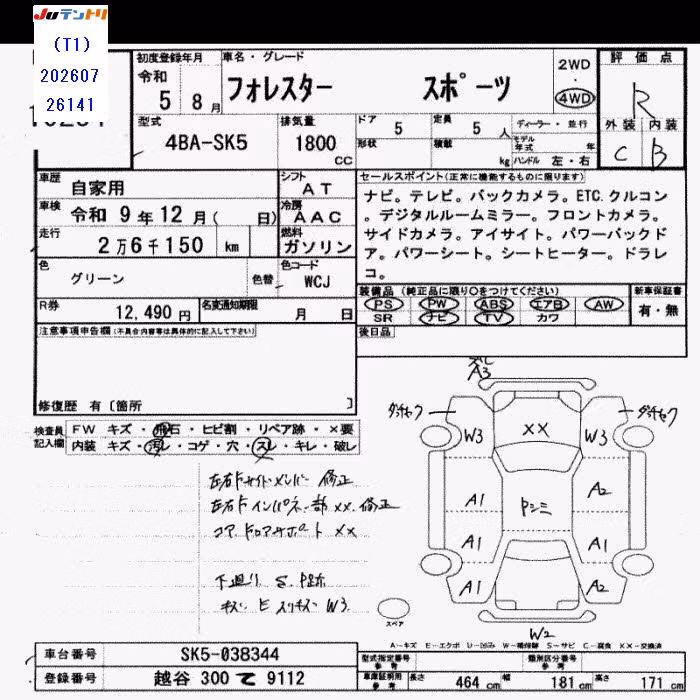 JUテントリ
(T1)
202607
26141
初度登録年月
令和
5 8 月
車名・グレード
フォレスター スポーツ
2WD
・
4WD
評価点
R
外装 内装
C B
型式
4BA-SK5
排気量
1800
CC
ドア
5
形状
定員
5 人
積載
kg
ディーラー・並行
モデル年式 年
ハンドル 左・右
車歴
自家用
シフト
AT
車検
令和 9 年 12 月 ( 日)
冷房
AAC
走行
2 万 6 千 150 km
燃料
ガソリン
色
グリーン
色替
色コード
WCJ
R券
12,490 円
名変通知期限
月 日
セールスポイント(正常に機能するものに限ります)
ナビ。テレビ。バックカメラ。ETC.クルコン
。デジタルルームミラー。フロントカメラ。
サイドカメラ。アイサイト。パワーバックド
ア。パワーシート。シートヒーター。ドラレ
コ。
装備品 (純正品に限り○をつけてください)
PS PW ABS エアB AW
SR ナビ TV カワ
新車保証書
有・無
後日品
注意事項申告欄(不具合内容等は具体的に記入して下さい)
修復歴 有 〔箇所 〕
検査員
記入欄
FW キズ・飛石・ヒビ割・リペア跡・×要
内装 キズ・汚レ・コゲ・穴・スレ・キレ・破レ
左右Fサイドメンバー 修正
左右Fインパネ部 ××.修正
コアドロアサポート ××
下廻り S. P跡
キズ・E スリキズ W3
A3
W3
××
W3
A1
A2
A1
A1
A1
A2
W2
スペア
A－キズ E－エクボ U－凹み W－補修跡 S－サビ C－腐食 ××－交換済
車台番号
SK5-038344
登録番号
越谷 300 て 9112
型式指定番号
参考
類別区分番号
参考
車庫証明用
参考
長さ 464 cm 幅 181 cm 高さ 171 cm